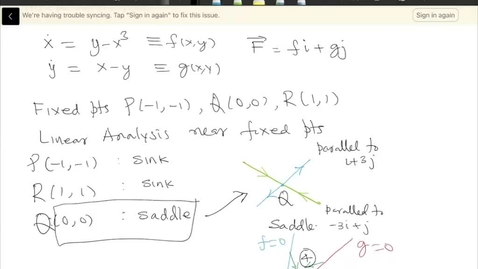 We're having trouble syncing. Tap "Sign in again" to fix this issue.
Sign in again
ẋ = y-x³ ≡ f(x,y) F⃗ = fi+gj
ẏ = x-y ≡ g(x,y)
Fixed pts P(-1,-1), Q(0,0), R(1,1)
Linear Analysis near fixed pts
P(-1,-1) : sink
R(1,1) : sink
Q(0,0) : saddle
parallel to
Q
parallel to
-3i+j
Saddle
f=0
+
g=0